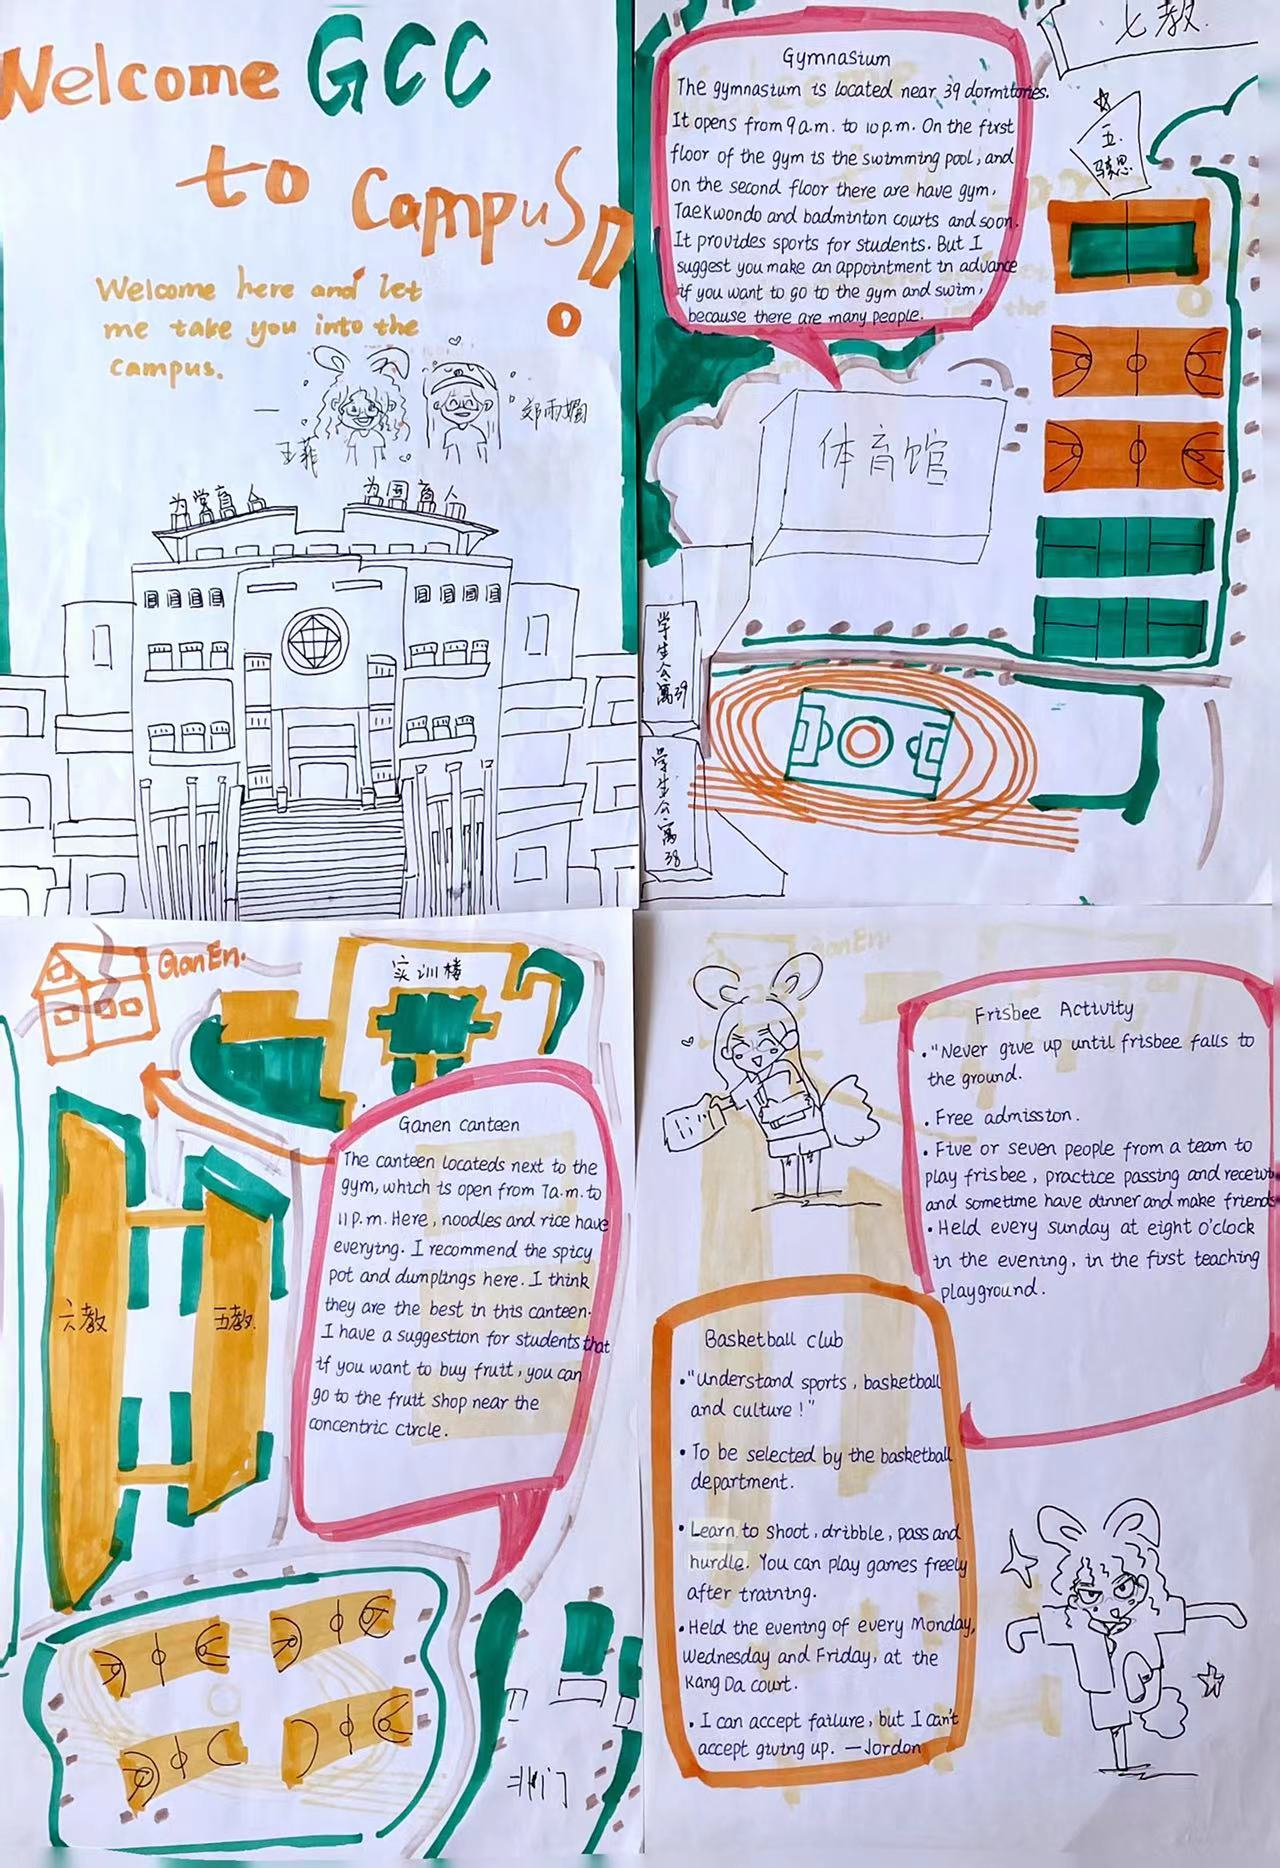 Welcome GCC
to Campus!
Welcome here and let
me take you into the
campus.
王菲
为党育人 为国育人
Gymnasium
The gymnasium is located near 39 dormitories.
It opens from 9 a.m. to 10 p.m. On the first
floor of the gym is the swimming pool, and
on the second floor there are have gym,
Taekwondo and badminton courts and soon.
It provides sports for students. But I
suggest you make an appointment in advance
if you want to go to the gym and swim,
because there are many people.
七教.
五.
体育馆
学生公寓39
学生公寓38
GanEn.
实训楼
Ganen canteen
The canteen locateds next to the
gym, which is open from 7a.m. to
11 p.m. Here, noodles and rice have
everying. I recommend the spicy
pot and dumplings here. I think
they are the best in this canteen.
I have a suggestion for students that
if you want to buy fruit, you can
go to the fruit shop near the
concentric circle.
六教
五教.
北门
Frisbee Activity
• "Never give up until frisbee falls to
the ground.
• Free admission.
• Five or seven people from a team to
play frisbee, practice passing and
and sometime have dinner and make friends
• Held every sunday at eight o'clock
in the evening, in the first teaching
playground.
Basketball club
• "Understand sports, basketball
and culture!"
• To be selected by the basketball
department.
• Learn to shoot, dribble, pass and
hurdle. You can play games freely
after training.
• Held the evening of every Monday,
Wednesday and Friday, at the
Kang Da court.
• I can accept failure, but I can't
accept giving up. —Jordon